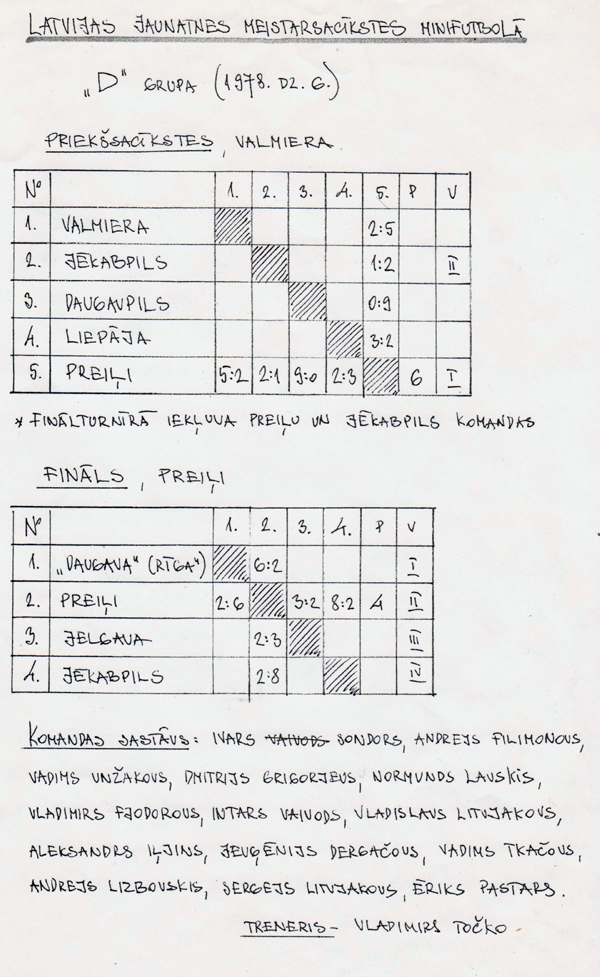 LATVIJAS JAUNATNES MEISTARSACĪKSTES MINIFUTBOLĀ
„D“ GRUPA (1978. DZ. G.)
PRIEKŠSACĪKSTES, VALMIERA.
№ 1. 2. 3. 4. 5. P V
1. VALMIERA 2:5
2. JĒKABPILS 1:2 II
3. DAUGAVPILS 0:9
4. LIEPĀJA 3:2
5. PREIĻI 5:2 2:1 9:0 2:3 6 I
* FINĀLTURNĪRĀ IEKĻUVA PREIĻU UN JĒKABPILS KOMANDAS
FINĀLS, PREIĻI
№ 1. 2. 3. 4. P V
1. „DAUGAVA“ (RĪGA“) 6:2 I
2. PREIĻI 2:6 3:2 8:2 4 II
3. JELGAVA 2:3 III
4. JĒKABPILS 2:8 IV
KOMANDAS SASTĀVS: IVARS VAIVODS SONDORS, ANDREJS FILIMONOVS,
VADIMS UNŽAKOVS, DMITRIJS GRIGORJEVS, NORMUNDS LAUSKIS,
VLADIMIRS FJODOROVS, INTARS VAIVODS, VLADISLAVS LITVJAKOVS,
ALEKSANDRS IĻJINS, JEVGĒNIJS DERGAČOVS, VADIMS TKAČOVS,
ANDREJS LIZBOVSKIS, SERGEJS LITVJAKOVS, ĒRIKS PASTARS.
TRENERIS - VLADIMIRS TOČKO.